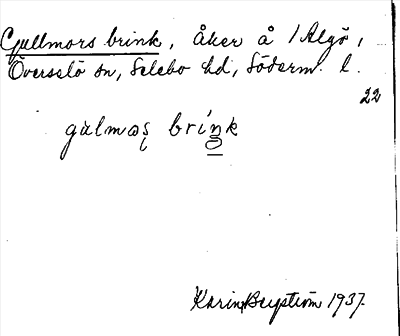 Gullmors brink, Åker å 1 Algö,
Överselö sn, Selebo hd, Söderm. l.
22
gulmos brink
Karin Bergström 1937.